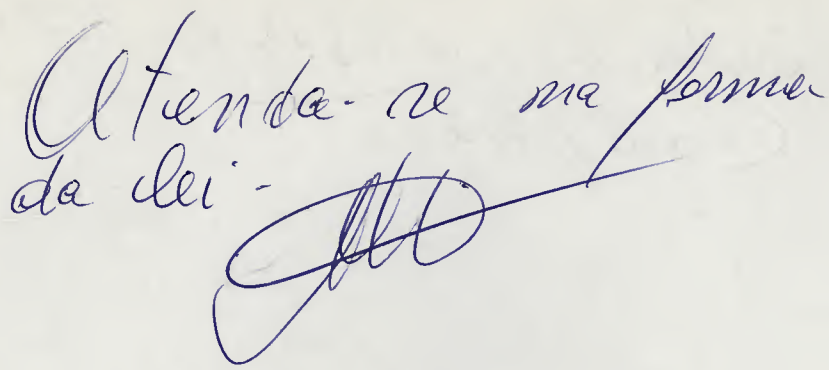 Atenda-se na forma
da lei-